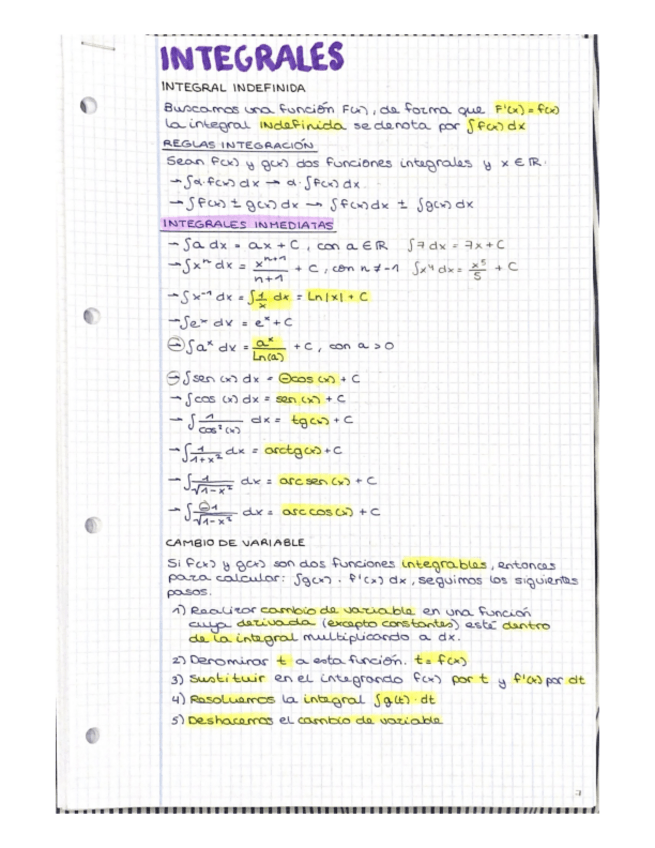 INTEGRALES
INTEGRAL INDEFINIDA
Buscamos una función F(x), de forma que F'(x) = f(x)
la integral indefinida se denota por ∫f(x) dx
REGLAS INTEGRACIÓN
Sean f(x) y g(x) dos funciones integrales y x ∈ ℝ.
→ ∫α·f(x) dx → α·∫f(x) dx.
→ ∫f(x) ± g(x) dx → ∫f(x) dx ± ∫g(x) dx
INTEGRALES INMEDIATAS
→ ∫a dx = ax + C, con a ∈ ℝ ∫7 dx = 7x + C
→ ∫xⁿ dx = xⁿ⁺¹/n+1 + C, con n ≠ -1 ∫x⁴ dx = x⁵/5 + C
→ ∫x⁻¹ dx = ∫1/x dx = Ln|x| + C
→ ∫eˣ dx = eˣ + C
→ ∫aˣ dx = aˣ/Ln(a) + C, con a > 0
→ ∫sen (x) dx = -cos (x) + C
→ ∫cos (x) dx = sen (x) + C
→ ∫1/cos²(x) dx = tg(x) + C
→ ∫1/1+x² dx = arctg(x) + C
→ ∫1/√1-x² dx = arcsen(x) + C
→ ∫-1/√1-x² dx = arccos(x) + C
CAMBIO DE VARIABLE
Si f(x) y g(x) son dos funciones integrables, entonces
para calcular: ∫g(x) · f'(x) dx, seguimos los siguientes
pasos.
1) Realizar cambio de variable en una función
cuya derivada (excepto constantes) esté dentro
de la integral multiplicando a dx.
2) Denominar t a esta función. t = f(x)
3) Sustituir en el integrando f(x) por t y f'(x) por dt
4) Resolvemos la integral ∫g(t) · dt
5) Deshacemos el cambio de variable